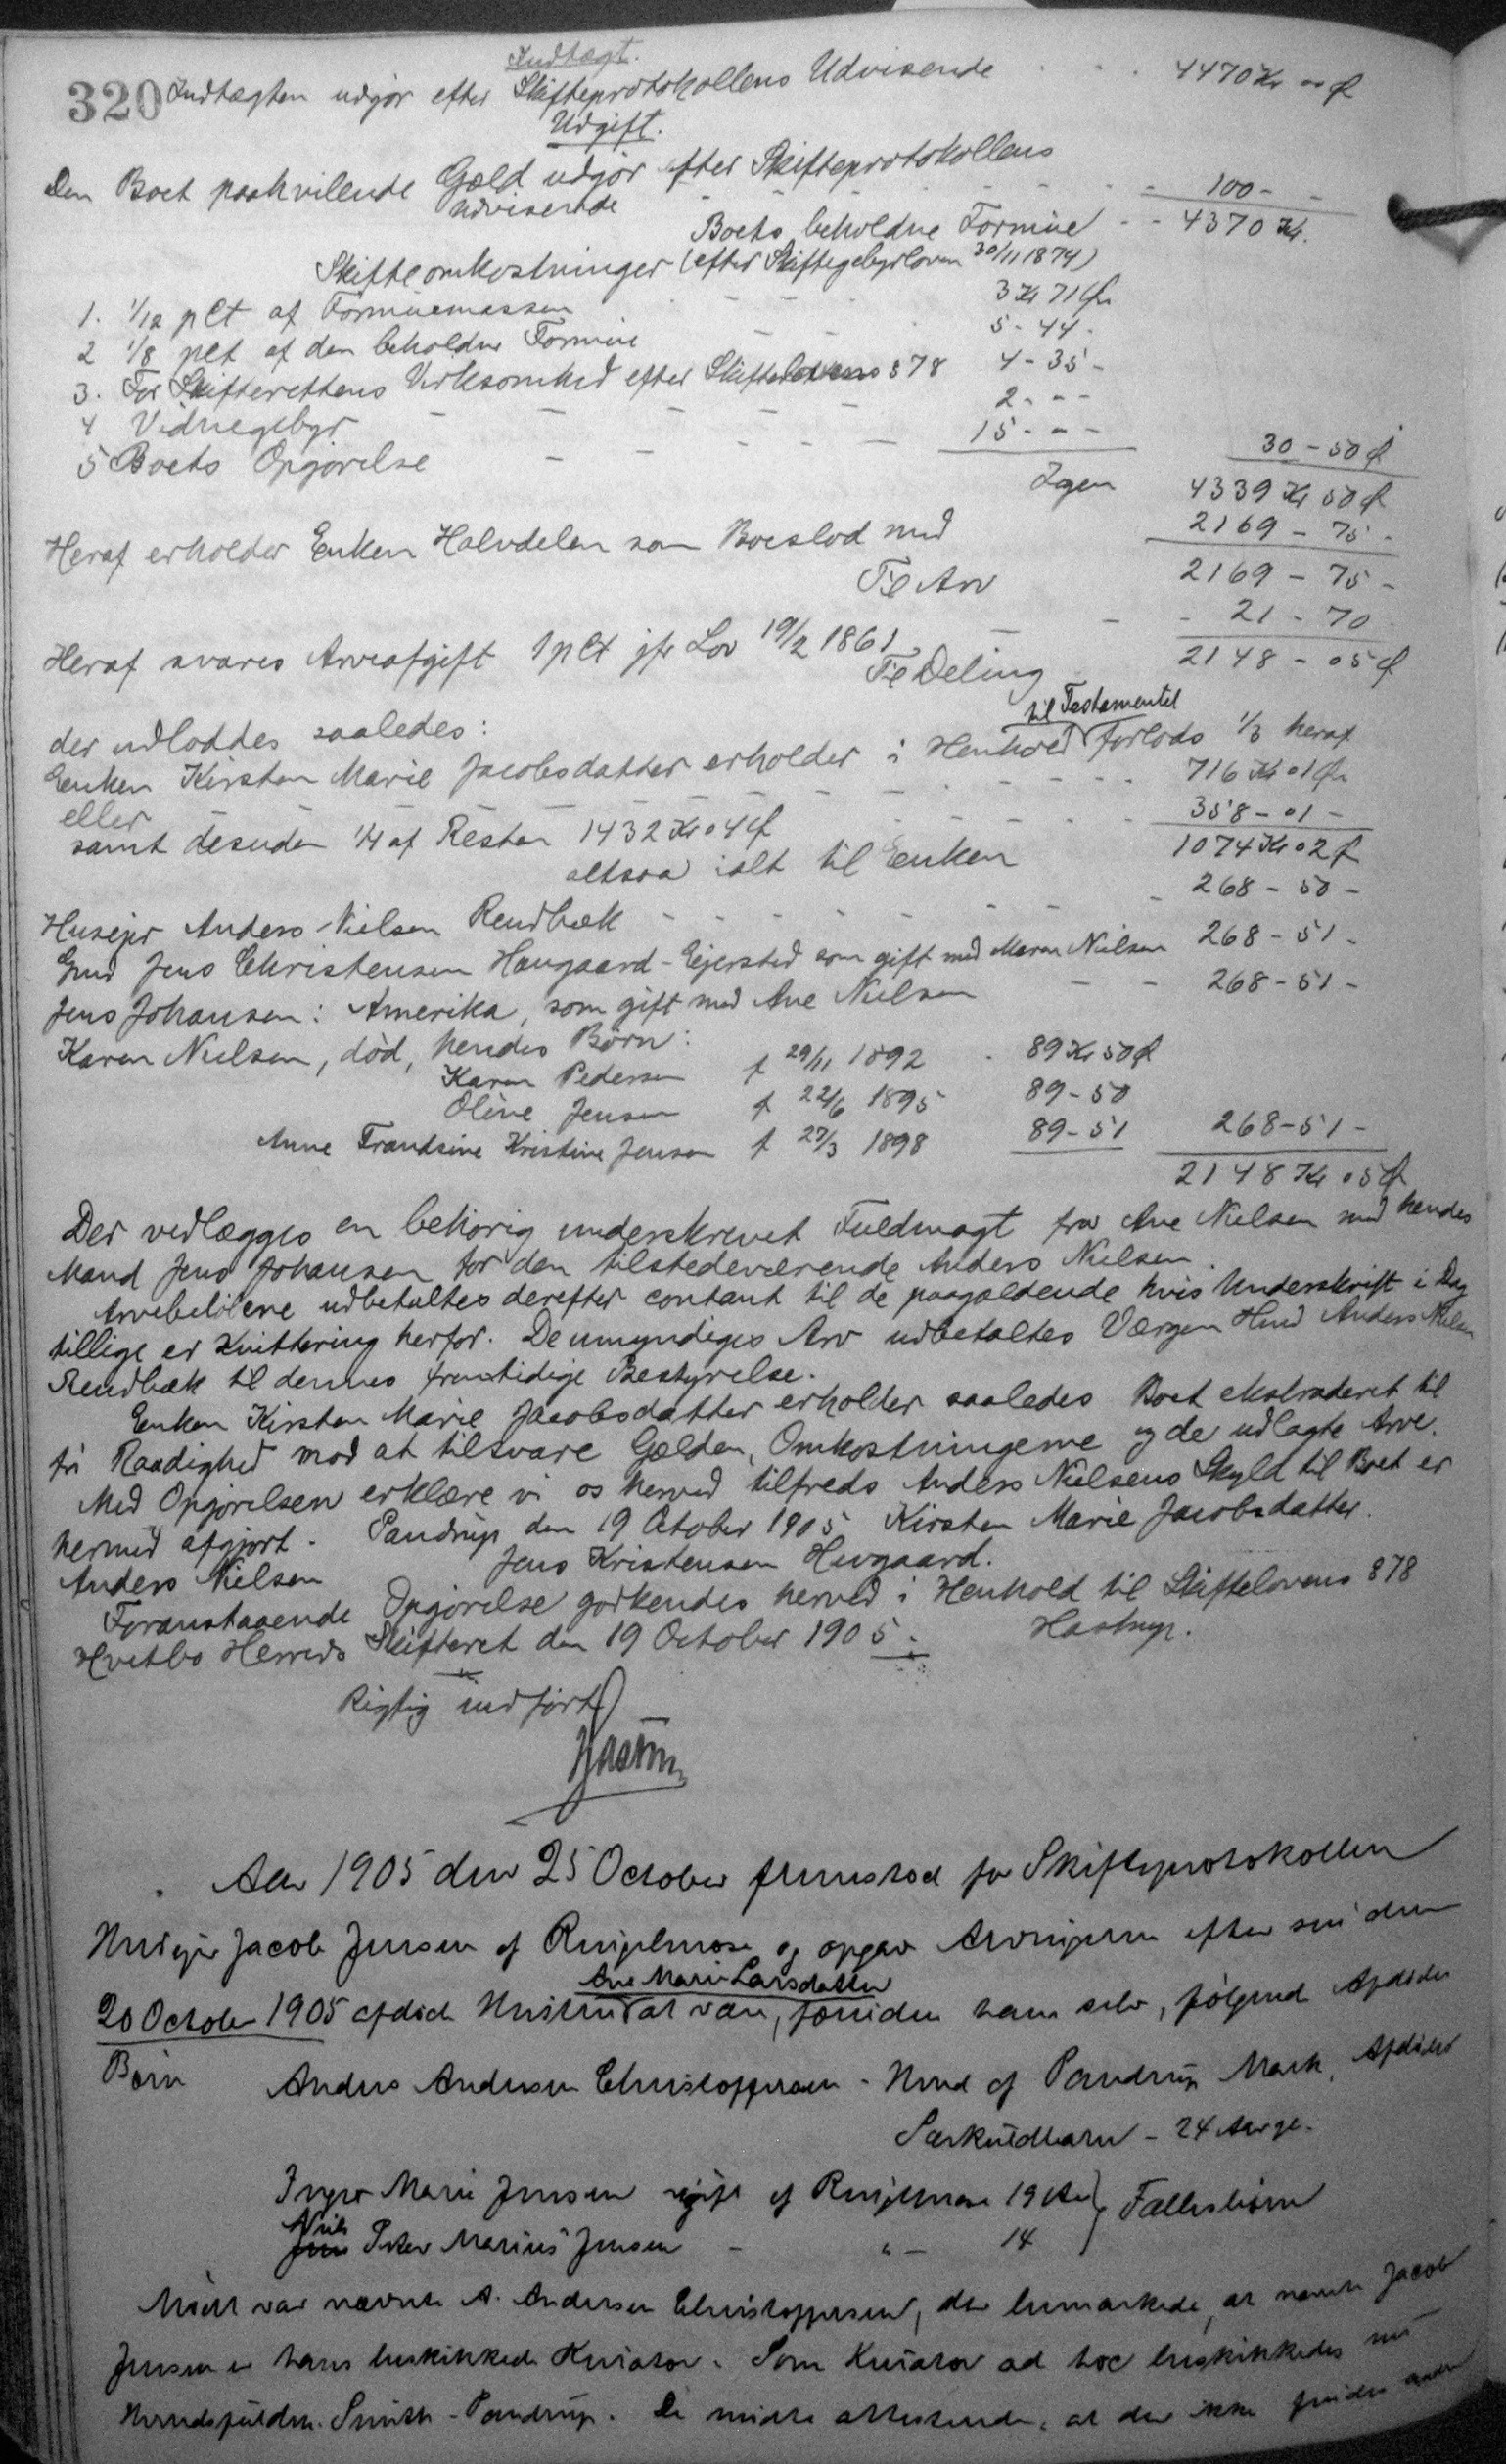 Indtægt.
320 Indtægten udgjør efter Skifteprotokollens Udvisende - - - 4470 Kr. 00 Ø
Udgift.
Den Boet paahvilende Gæld udgjør efter Skifteprotokollens
Udvisende - - - 100 - -
Boets beholdne Formue - - 4370 Kr.
Skifteomkostninger (efter Skiftegebyrloven 30/11 1874)
1. 1/12 pCt af Formuemassen - - - 3 Kr 71 Ø
2 1/8 pCt af den beholdne Formue - - 5 - 44 -
3. For Skifterettens Virksomhed efter Skiftelovens § 78 4 - 35 -
4 Vidnegebyr - - - - - 2 - - -
5 Boets Opgjørelse - - - - - 15 - - - 30 - 50 Ø
Igen 4339 Kr 50 Ø
Heraf erholder Enken Halvdelen som Boeslod med 2169 - 75 -
Til Arv 2169 - 75 -
Heraf svares Arveafgift 1 pCt jfr Lov 19/2 1861 - - - 21 - 70 -
Til Deling 2148 - 05 Ø
der udloddes saaledes:
til Testamentet
Enken Kirsten Marie Jacobsdatter erholder i Henhold forlods 1/3 heraf
eller - - - - - 716 Kr 01 Ø
samt desuden 1/4 af Resten 1432 Kr 04 Ø - - - - 358 - 01 -
altsaa ialt til Enken 1074 Kr 02 Ø
Husejer Anders Nielsen Rendbæk - - - - - 268 - 50 -
Gmd Jens Christensen Haugaard - Ejersted som gift med Maren Nielsen 268 - 51 -
Jens Johansen i Amerika, som gift med Ane Nielsen - - 268 - 51 -
Karen Nielsen, død, hendes Børn:
Karen Pedersen f 29/11 1892 - 89 Kr 50 Ø
Oline Jensen f 22/6 1895 89 - 50
Anne Frandsine Kristine Jensen f 27/3 1898 89 - 51 268 - 51 -
2148 Kr 05 Ø
Der vedlægges en behørig underskrevet Fuldmagt fra Ane Nielsen med hendes
Mand Jens Johansen for den tilstedeværende Anders Nielsen.
Arvebeløbene udbetaltes derefter contant til de paagældende hvis Underskrift i Dag
tillige er Kvittering herfor. De umyndiges Arv udbetaltes Værgen Hmd Anders Nielsen
Rendbæk til dennes fremtidige Bestyrelse.
Enken Kirsten Marie Jacobsdatter erholder saaledes Boet ekstraderet til
fri Raadighed mod at tilsvare Gælden, Omkostningerne og de udlagte Arve.
Med Opgjørelsen erklære vi os herved tilfreds Anders Nielsens Skyld til Boet er
hermed afgjort. Pandrup den 19 October 1905 Kirsten Marie Jacobsdatter.
Anders Nielsen Jens Kristensen Hougaard.
Foranstaaende Opgjørelse godkendes herved i Henhold til Skiftelovens § 78
Hvetbo Herreds Skifteret den 19 October 1905. Hastrup.
Rigtig indført
Hastrup
Aar 1905 den 25 October fremstod for Skifteprotokollen
Husejer Jacob Jensen af og opgav Arvingerne efter sin den
Ane Marie Larsdatter
20 October 1905 afdøde Hustru at være, foruden ham selv, følgende Afdødes
Børn Anders Andersen Christoffersen - Hmd af Pandrup Mark, Afdødes
Særkuldbarn - 24 Aar gl.
Inger Marie Jensen ugift af 19 Aar } Fællesbørn
Niels
Peter Marius Jensen - " - 14
Mødt var nævnte A. Andersen Christoffersen, der bemærkede, at nævnte Jacob
Jensen er hans beskikkede Kurator. Som Kurator ad hoc beskikkedes nu
Herredsfuldm. Smith - Pandrup. De mødte attesterede, at der ikke findes andre